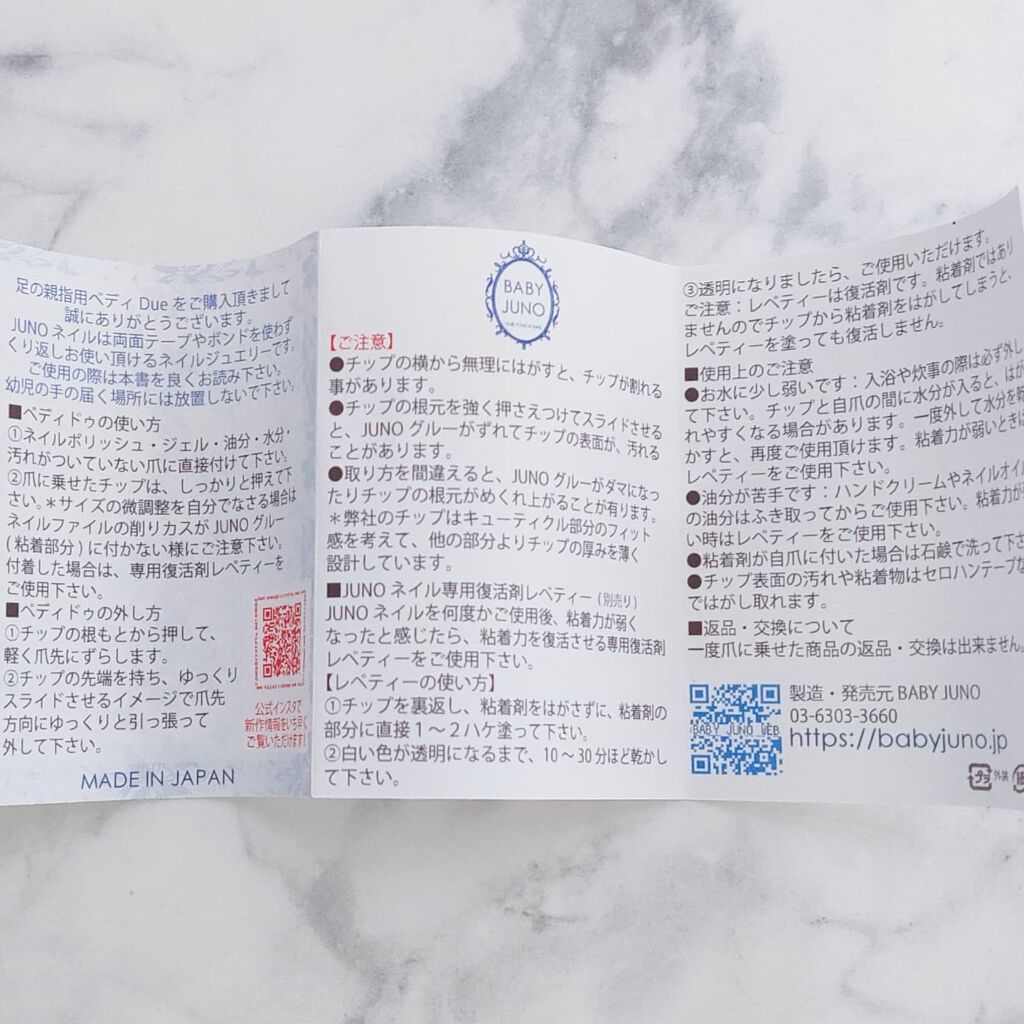 足の親指用ペディ Due をご購入頂きまして
誠にありがとうございます。
JUNO ネイルは両面テープやボンドを使わず
くり返しお使い頂けるネイルジュエリーです。
ご使用の際は本書を良くお読み下さい。
幼児の手の届く場所には放置しないで下さい。
■ペディドゥの使い方
①ネイルポリッシュ・ジェル・油分・水分・
汚れがついていない爪に直接付けて下さい。
②爪に乗せたチップは、しっかりと押えて下
さい。＊サイズの微調整を自分でなさる場合は
ネイルファイルの削りカスが JUNO グルー
(粘着部分)に付かない様にご注意下さい。
付着した場合は、専用復活剤レペティーを
ご使用下さい。
■ペディドゥの外し方
①チップの根もとから押して、
軽く爪先にずらします。
②チップの先端を持ち、ゆっくり
スライドさせるイメージで爪先
方向にゆっくりと引っ張って
外して下さい。
公式インスタで
新作情報をいち早く
ご覧いただけます!
MADE IN JAPAN
BABY
JUNO
【ご注意】
●チップの横から無理にはがすと、チップが割れる
事があります。
●チップの根元を強く押さえつけてスライドさせる
と、JUNO グルーがずれてチップの表面が、汚れる
ことがあります。
●取り方を間違えると、JUNO グルーがダマになっ
たりチップの根元がめくれ上がることが有ります。
＊弊社のチップはキューティクル部分のフィット
感を考えて、他の部分よりチップの厚みを薄く
設計しています。
■JUNO ネイル専用復活剤レペティー(別売り)
JUNO ネイルを何度かご使用後、粘着力が弱く
なったと感じたら、粘着力を復活させる専用復活剤
レペティーをご使用下さい。
【レペティーの使い方】
①チップを裏返し、粘着剤をはがさずに、粘着剤の
部分に直接１～２ハケ塗って下さい。
②白い色が透明になるまで、10～30分ほど乾かし
て下さい。
③透明になりましたら、ご使用いただけます。
ご注意：レペティーは復活剤です。粘着剤ではあり
ませんのでチップから粘着剤をはがしてしまうと、
レペティーを塗っても復活しません。
■使用上のご注意
●お水に少し弱いです：入浴や炊事の際は必ず外し
て下さい。チップと自爪の間に水分が入ると、はが
れやすくなる場合があります。一度外して水分を乾
かすと、再度ご使用頂けます。粘着力が弱いときは
レペティーをご使用下さい。
●油分が苦手です：ハンドクリームやネイルオイル
の油分はふき取ってからご使用下さい。粘着力が
い時はレペティーをご使用下さい。
●粘着剤が自爪に付いた場合は石鹸で洗って下さ
●チップ表面の汚れや粘着物はセロハンテープな
ではがし取れます。
■返品・交換について
一度爪に乗せた商品の返品・交換は出来ません。
BABY JUNO WEB
製造・発売元 BABY JUNO
03-6303-3660
https://babyjuno.jp
プラ 外装 紙